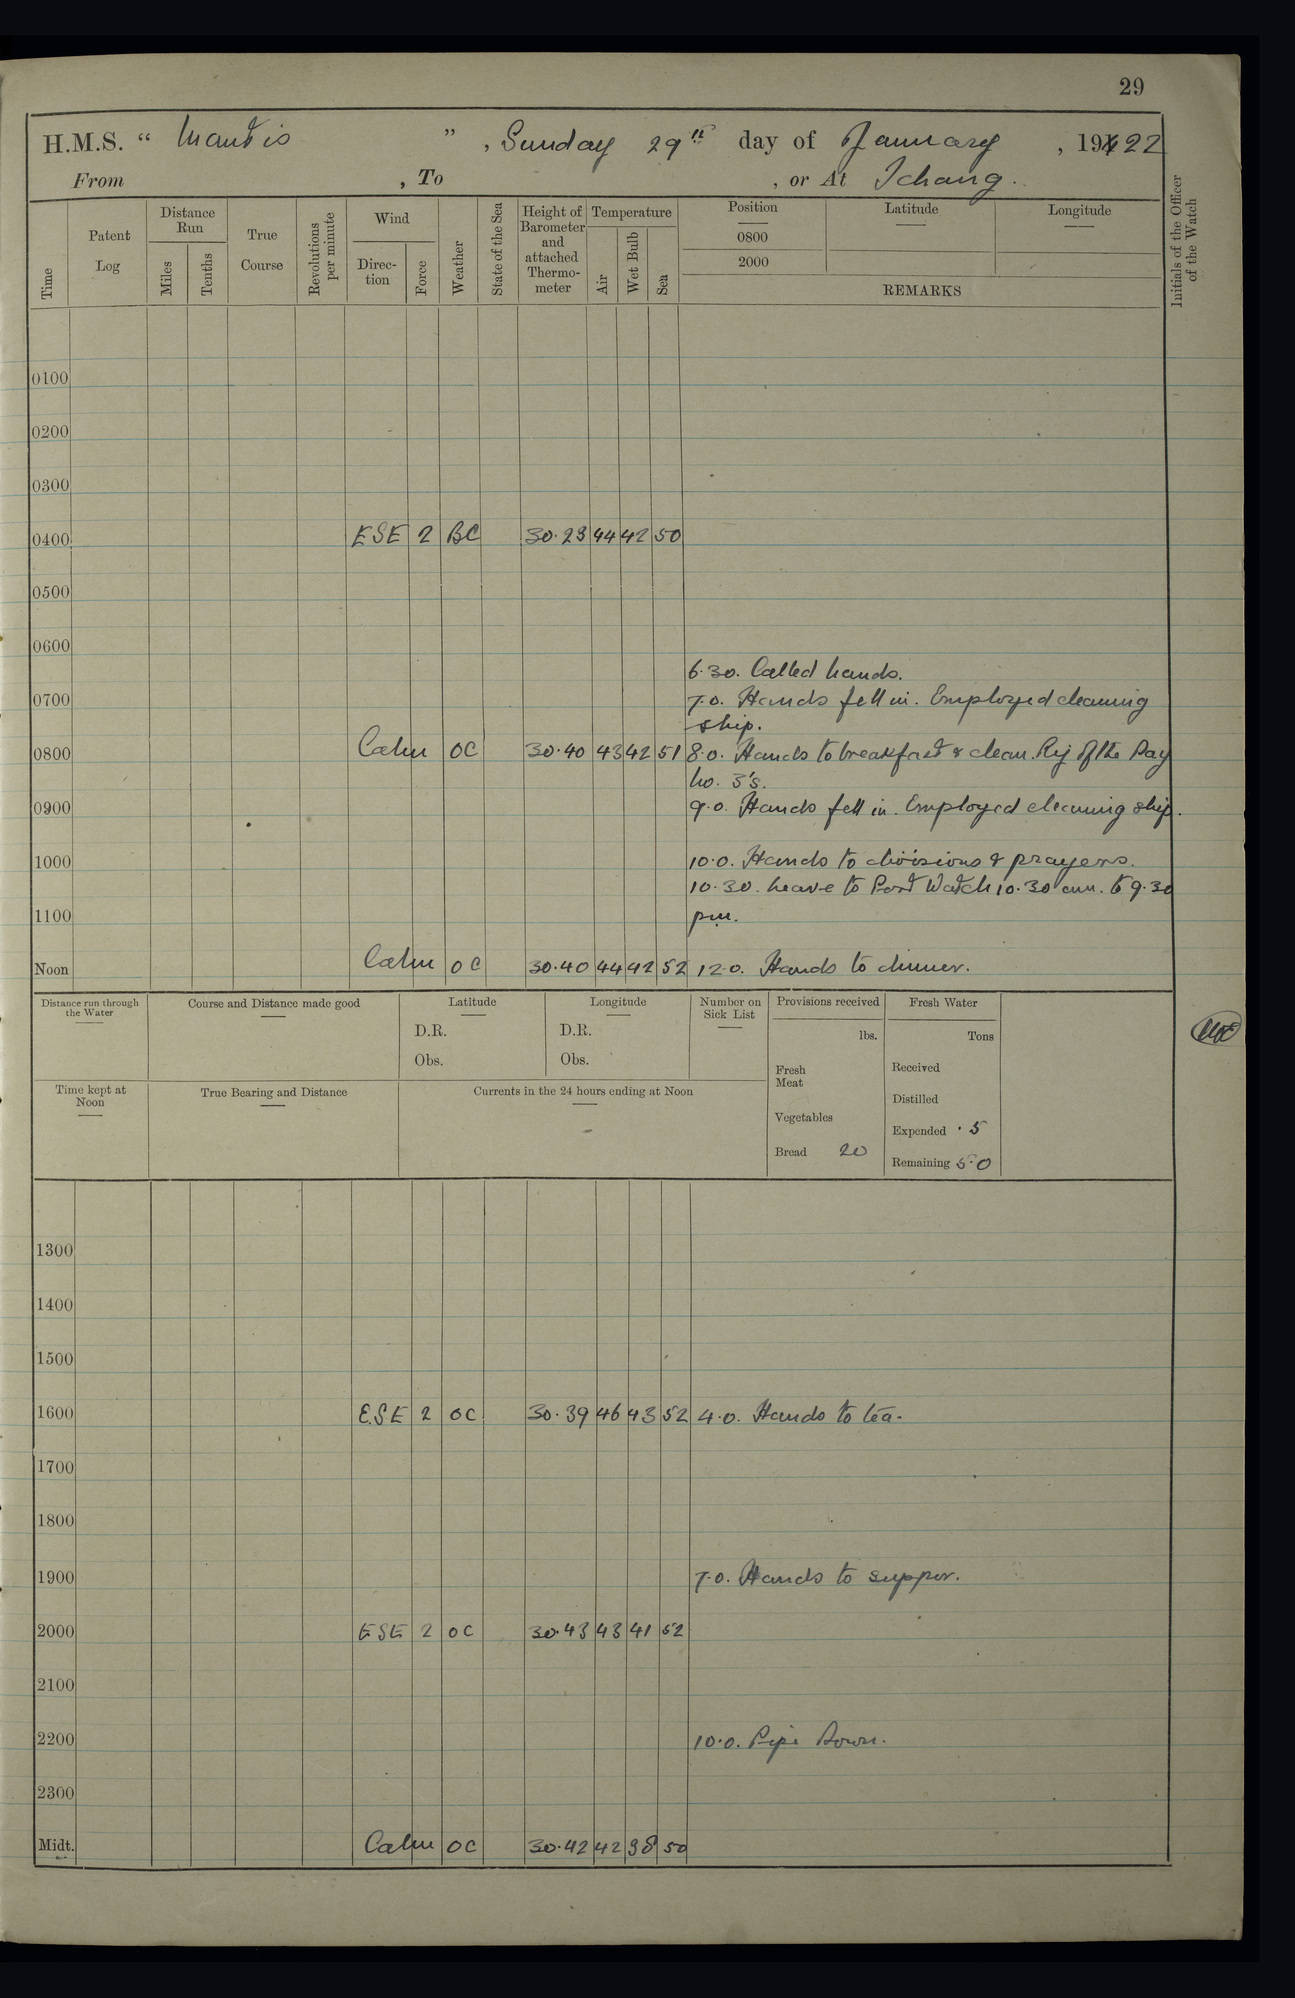 29
H.M.S. “ Mantis ” , Sunday 29th day of January , 1922
From , To , or At Ichang.
Time
Patent Log
Distance Run
Miles
Tenths
True Course
Revolutions per minute
Wind
Direc-tion
Force
Weather
State of the Sea
Height of Barometer and attached Thermo-meter
Temperature
Air
Wet Bulb
Sea
Position
0800
2000
Latitude
Longitude
REMARKS
Initials of the Officer of the Watch
0100
0200
0300
0400 ESE 2 BC 30.23 44 42 50
0500
0600
6.30. Called hands.
0700 7.0. Hands fell in. Employed cleaning
ship.
0800 Calm OC 30.40 43 42 51 8.0. Hands to breakfast & clean. Rig of the Day
No. 3's.
0900 9.0. Hands fell in. Employed cleaning ship.
1000 10.0. Hands to divisions & prayers.
10.30. Leave to Port Watch 10.30 am. to 9.30
1100 pm.
Noon Calm OC 30.40 44 42 52 12.0. Hands to dinner.
Distance run through the Water
Course and Distance made good
Latitude
D.R.
Obs.
Longitude
D.R.
Obs.
Number on Sick List
Provisions received
lbs.
Fresh Meat
Vegetables
Bread 20
Fresh Water
Tons
Received
Distilled
Expended .5
Remaining 5.0
Time kept at Noon
True Bearing and Distance
Currents in the 24 hours ending at Noon
1300
1400
1500
1600 ESE 2 OC 30.39 46 43 52 4.0. Hands to tea.
1700
1800
1900 7.0. Hands to supper.
2000 ESE 2 OC 30.43 43 41 52
2100
2200 10.0. Pipe Down.
2300
Midt. Calm OC 30.42 42 38 50